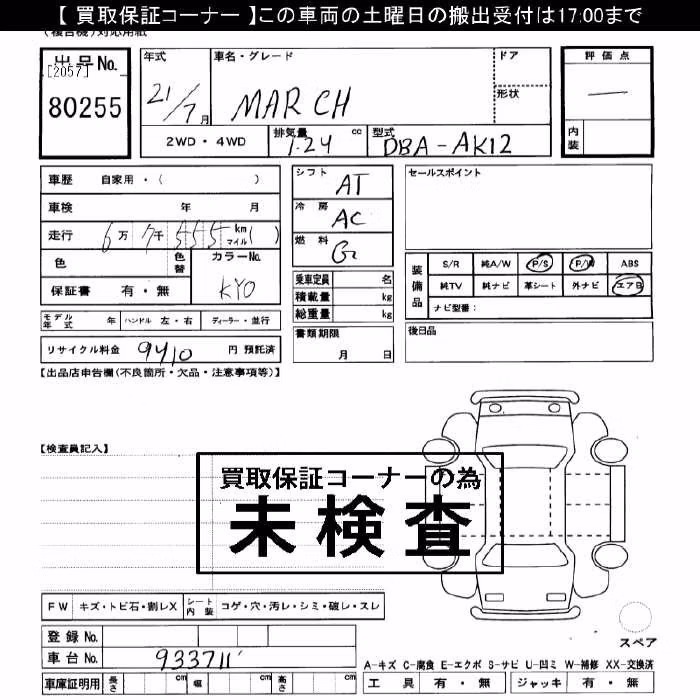 【 買取保証コーナー 】この車両の土曜日の搬出受付は17:00まで
出品No.
[2057]
80255
年式
21/7月
車名・グレード
MARCH
ドア
形状
2WD・4WD
排気量 1.24 cc
型式 DBA-AK12
評価点
—
内装
車歴 自家用・( )
車検 年 月
走行 6万 7千 555 km マイル( )
色
色替
カラーNo.
KYO
保証書 有・無
モデル年式 年 ハンドル 左・右 ディーラー・並行
リサイクル料金 9410 円 預託済
シフト AT
冷房 AC
燃料 G
乗車定員 名
積載量 kg
総重量 kg
書類期限
月 日
セールスポイント
装備品
S/R 純A/W P/S P/W ABS
純TV 純ナビ 革シート 外ナビ エアB
ナビ型番:
後日品
【出品店申告欄(不良箇所・欠品・注意事項等)】
【検査員記入】
買取保証コーナーの為
未検査
FW キズ・トビ石・割レX シート内装 コゲ・穴・汚レ・シミ・破レ・スレ
登録No.
車台No. 933711
車庫証明用 長さ cm 幅 cm 高さ cm
スペア
A-キズ C-腐食 E-エクボ S-サビ U-凹ミ W-補修 XX-交換済
工具 有・無 ジャッキ 有・無